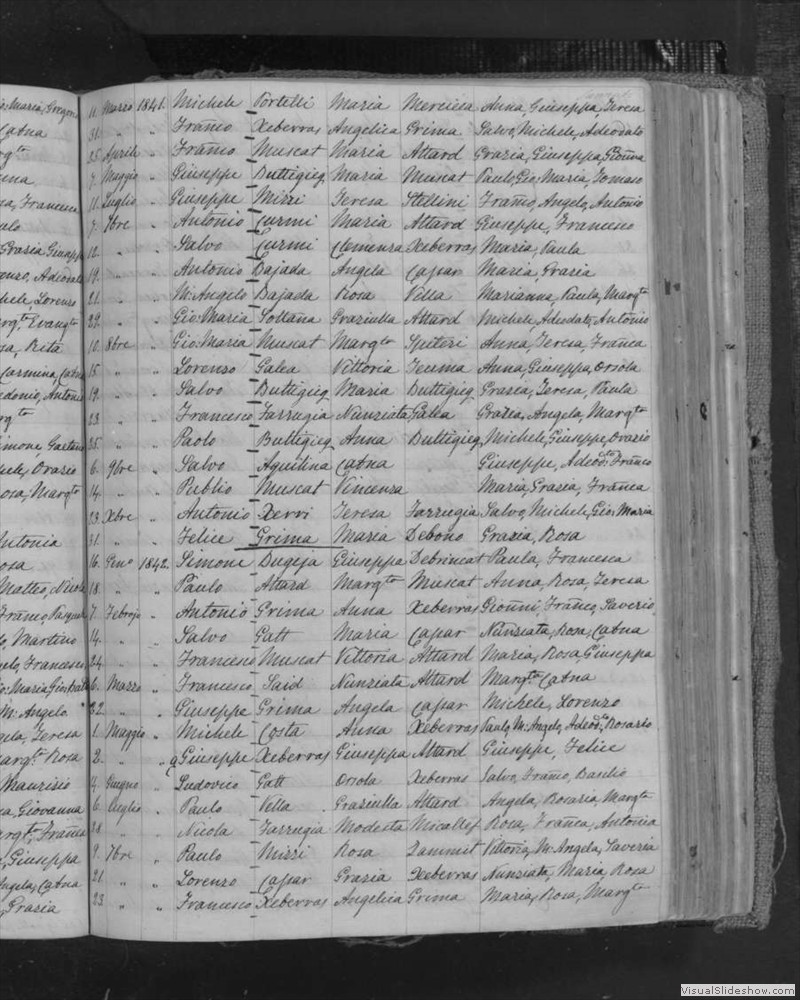 io: Maria, Gregor
Catna
argta
nna
sa, Francesca
aulo
Grazia Giusepp
onzo, Adeodato
hele, Lorenzo
argta, Evangta
sa, Rita
Carmina, Catna
edonio, Antonio
rgta
imone, Gaetano
hele, Orazio
Rosa, Margta
Antonia
osa
Matteo, Nicola
Franco, Pasquale
lo, Martino
gelo, Francesco
io: Maria, Gio: Batta
M: Angelo
gela, Teresa
argta, Rosa
Maurizio
a, Giovanna
argta, Franca
, Giuseppa
Angela, Catna
, Grazia
11. Marzo 1841. Michele Portelli Maria Mercieca Anna, Giuseppa, Teresa
31. " " Franco Xeberras Angelica Grima Salvo, Michele, Adeodato
25. Aprile " Franco Muscat Maria Attard Grazia, Giuseppa, Gionna
7. Maggio " Giuseppe Buttigieg Maria Muscat Paulo, Gio: Maria, Tomaso
11. Luglio " Giuseppe Mizzi Teresa Stellini Franco, Angelo, Antonio
7. 7bre " Antonio Curmi Maria Attard Giuseppe, Francesco
12. " " Salvo Curmi Clemenza Xeberras Maria, Paula
19. " " Antonio Bajada Angela Capar Maria, Grazia
21. " " M: Angelo Bajada Rosa Vella Marianna, Paula, Margta
29. " " Gio: Maria Soltana Graziulla Attard Michele, Adeodato, Antonio
10. 8bre " Gio: Maria Muscat Margta Spiteri Anna, Teresa, Franca
15. " " Lorenzo Galea Vittoria Teuma Anna, Giuseppa, Orsola
19. " " Salvo Buttigieg Maria Buttigieg Grazia, Teresa, Paula
23. " " Francesco Farrugia Nunziata Galea Grazia, Angela, Margta
25. " " Paolo Buttigieg Anna Buttigieg Michele, Giuseppe, Orazio
6. 9bre " Salvo Aquilina Catna Giuseppe, Adeodto, Franco
14. " " Publio Muscat Vincenza Maria, Grazia, Franca
23. Xbre " Antonio Xerri Teresa Farrugia Salvo, Michele, Gio: Maria
31. " " Felice Grima Maria Debono Grazia, Rosa
16. Geno 1842. Simone Bugeja Giuseppa Debrincat Paula, Francesca
18. " " Paulo Attard Margta Muscat Anna, Rosa, Teresa
7. Febrajo " Antonio Grima Anna Xeberras Gionni, Franco, Saverio
14. " " Salvo Gatt Maria Capar Nunziata, Rosa, Catna
24. " " Francesco Muscat Vittoria Attard Maria, Rosa, Giuseppa
6. Marzo " Francesco Said Nunziata Attard Margta, Catna
22. " " Giuseppe Grima Angela Capar Michele, Lorenzo
1. Maggio " Michele Costa Anna Xeberras Paulo, M: Angelo, Adeodto, Rosario
2. " " Giuseppe Xeberras Giuseppa Attard Giuseppe, Felice
4. Giugno " Ludovico Gatt Orsola Xeberras Salvo, Franco, Basilio
6. Luglio " Paulo Vella Graziulla Attard Angela, Rosaria, Margta
28. " " Nicola Farrugia Modesta Micallef Rosa, Franca, Antonia
9. 7bre " Paulo Mizzi Rosa Zammit Vittoria, M: Angela, Saveria
21. " " Lorenzo Capar Grazia Xeberras Nunziata, Maria, Rosa
23. " " Francesco Xeberras Angelica Grima Maria, Rosa, Margta
VisualSlideshow.com